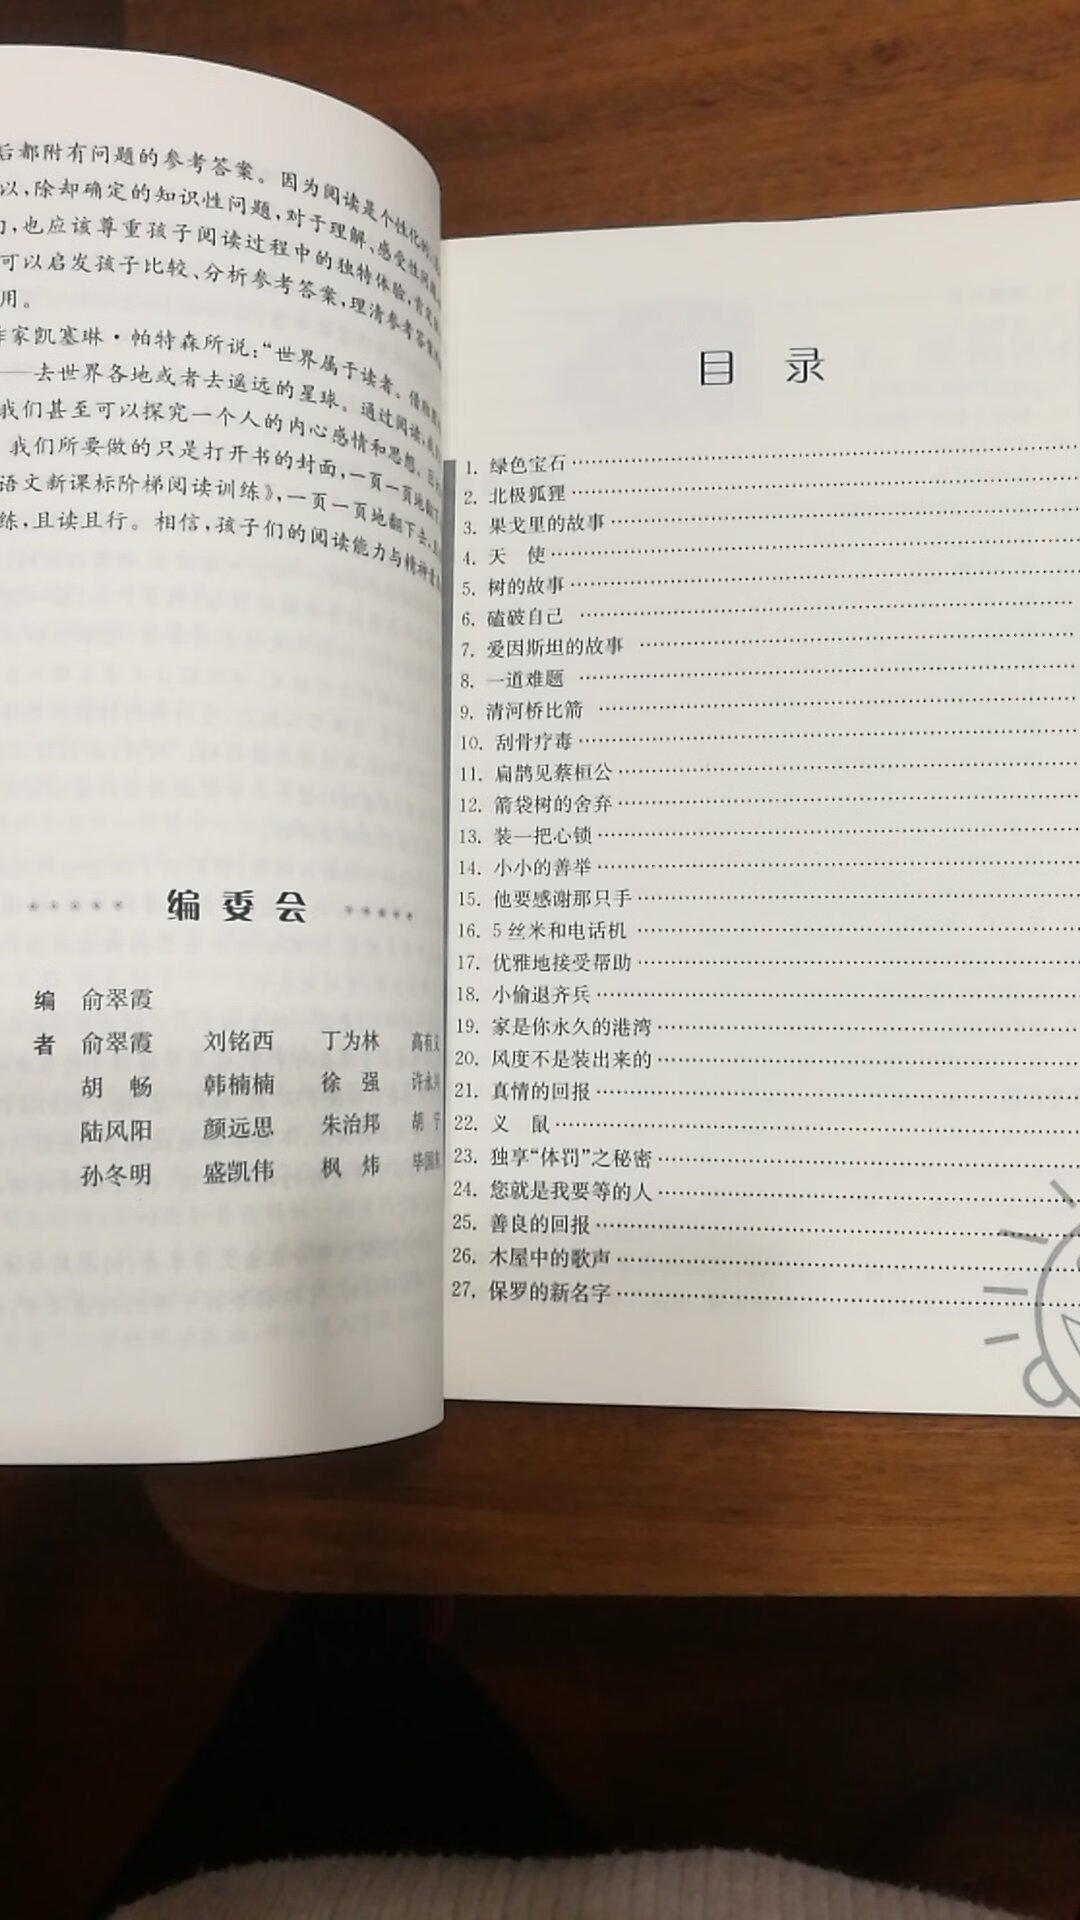 后都附有问题的参考答案。因为阅读是个性化的
以,除却确定的知识性问题,对于理解、感受性问题
,也应该尊重孩子阅读过程中的独特体验,肯定
可以启发孩子比较、分析参考答案,理清参考答案
用。
作家凯塞琳·帕特森所说:“世界属于读者。借助
——去世界各地或者去遥远的星球。通过阅读,
我们甚至可以探究一个人的内心感情和思想。
我们所要做的只是打开书的封面,一页一页地翻下
语文新课标阶梯阅读训练》,一页一页地翻下去,
练,且读且行。相信,孩子们的阅读能力与精神
编委会
编 俞翠霞
者 俞翠霞 刘铭西 丁为林 高有
胡 畅 韩楠楠 徐 强 许永
陆风阳 颜远思 朱治邦 胡 宁
孙冬明 盛凯伟 枫 炜 毕国
目 录
1. 绿色宝石
2. 北极狐狸
3. 果戈里的故事
4. 天 使
5. 树的故事
6. 磕破自己
7. 爱因斯坦的故事
8. 一道难题
9. 清河桥比箭
10. 刮骨疗毒
11. 扁鹊见蔡桓公
12. 箭袋树的舍弃
13. 装一把心锁
14. 小小的善举
15. 他要感谢那只手
16. 5丝米和电话机
17. 优雅地接受帮助
18. 小偷退齐兵
19. 家是你永久的港湾
20. 风度不是装出来的
21. 真情的回报
22. 义 鼠
23. 独享“体罚”之秘密
24. 您就是我要等的人
25. 善良的回报
26. 木屋中的歌声
27. 保罗的新名字